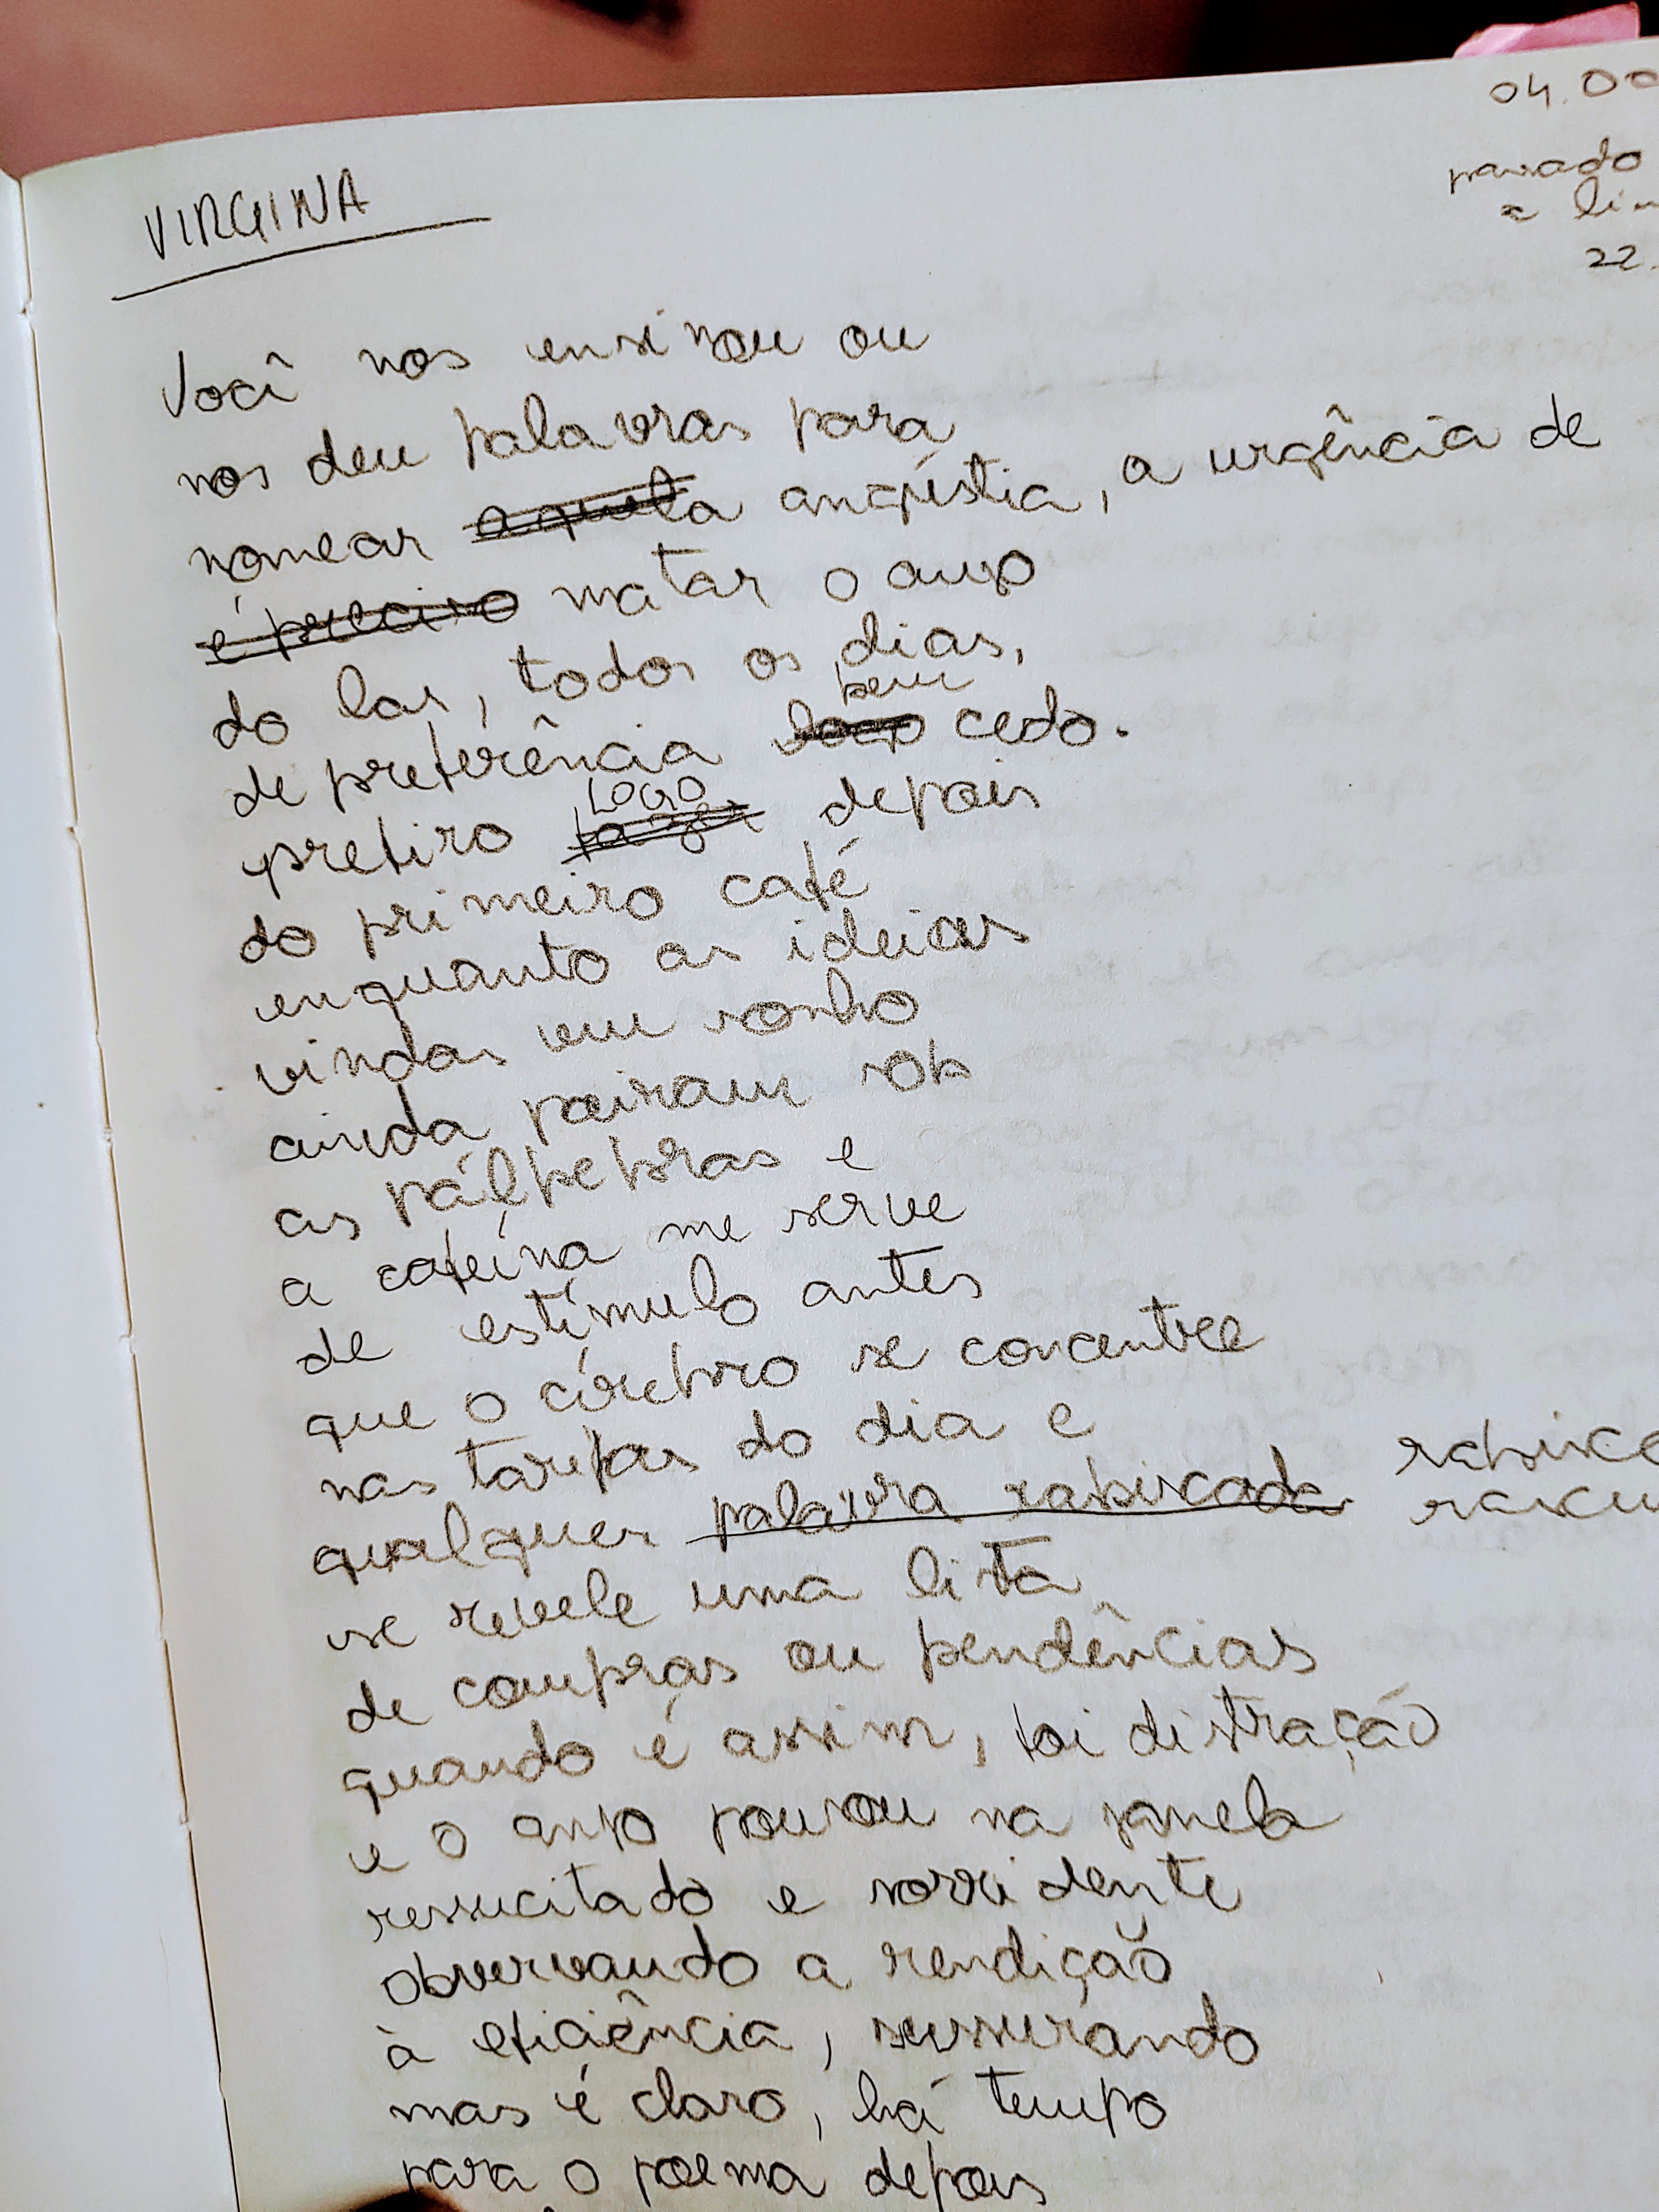 04.00
passado
a lim
22.
VIRGINA
Você nos ensinou ou
nos deu palavras para
nomear aquela angústia, a urgência de
é preciso matar o anjo
do lar, todos os dias,
bem
de preferência logo cedo.
LOGO
prefiro fazer depois
do primeiro café
enquanto as ideias
vindas em sonho
ainda pairam sob
as pálpebras e
a cafeína me serve
de estímulo antes
que o cérebro se concentre
nas tarefas do dia e
qualquer palavra rabiscada rabisc
rascu
se revele uma lista
de compras ou pendências
quando é assim, foi distração
e o anjo pousou na janela
ressucitado e sorridente
observando a rendição
à eficiência, sussurando
mas é claro, há tempo
para o poema depois